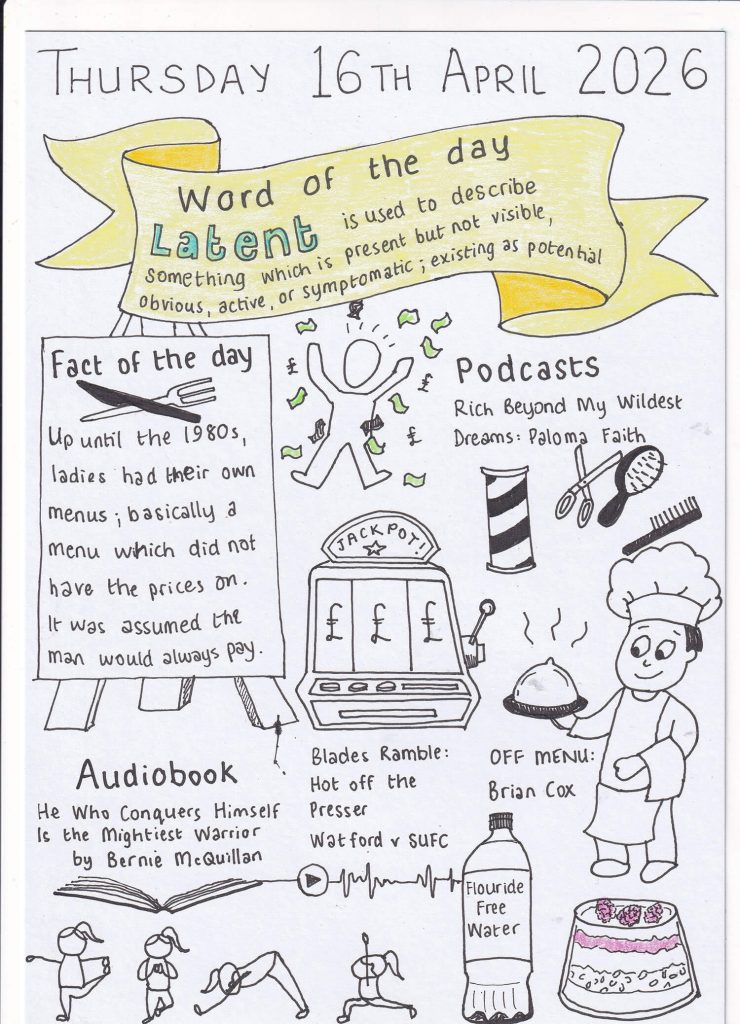 THURSDAY 16TH APRIL 2026
Word of the day
Latent is used to describe
something which is present but not visible,
obvious, active, or symptomatic; existing as potential
Fact of the day
Up until the 1980s,
ladies had their own
menus; basically a
menu which did not
have the prices on.
It was assumed the
man would always pay.
£
£
£
Podcasts
Rich Beyond My Wildest
Dreams: Paloma Faith
JACKPOT!
£ £ £
Blades Ramble:
Hot off the
Presser
Watford v SUFC
OFF MENU:
Brian Cox
Audiobook
He Who Conquers Himself
Is the Mightiest Warrior
by Bernie McQuillan
Flouride
Free
Water